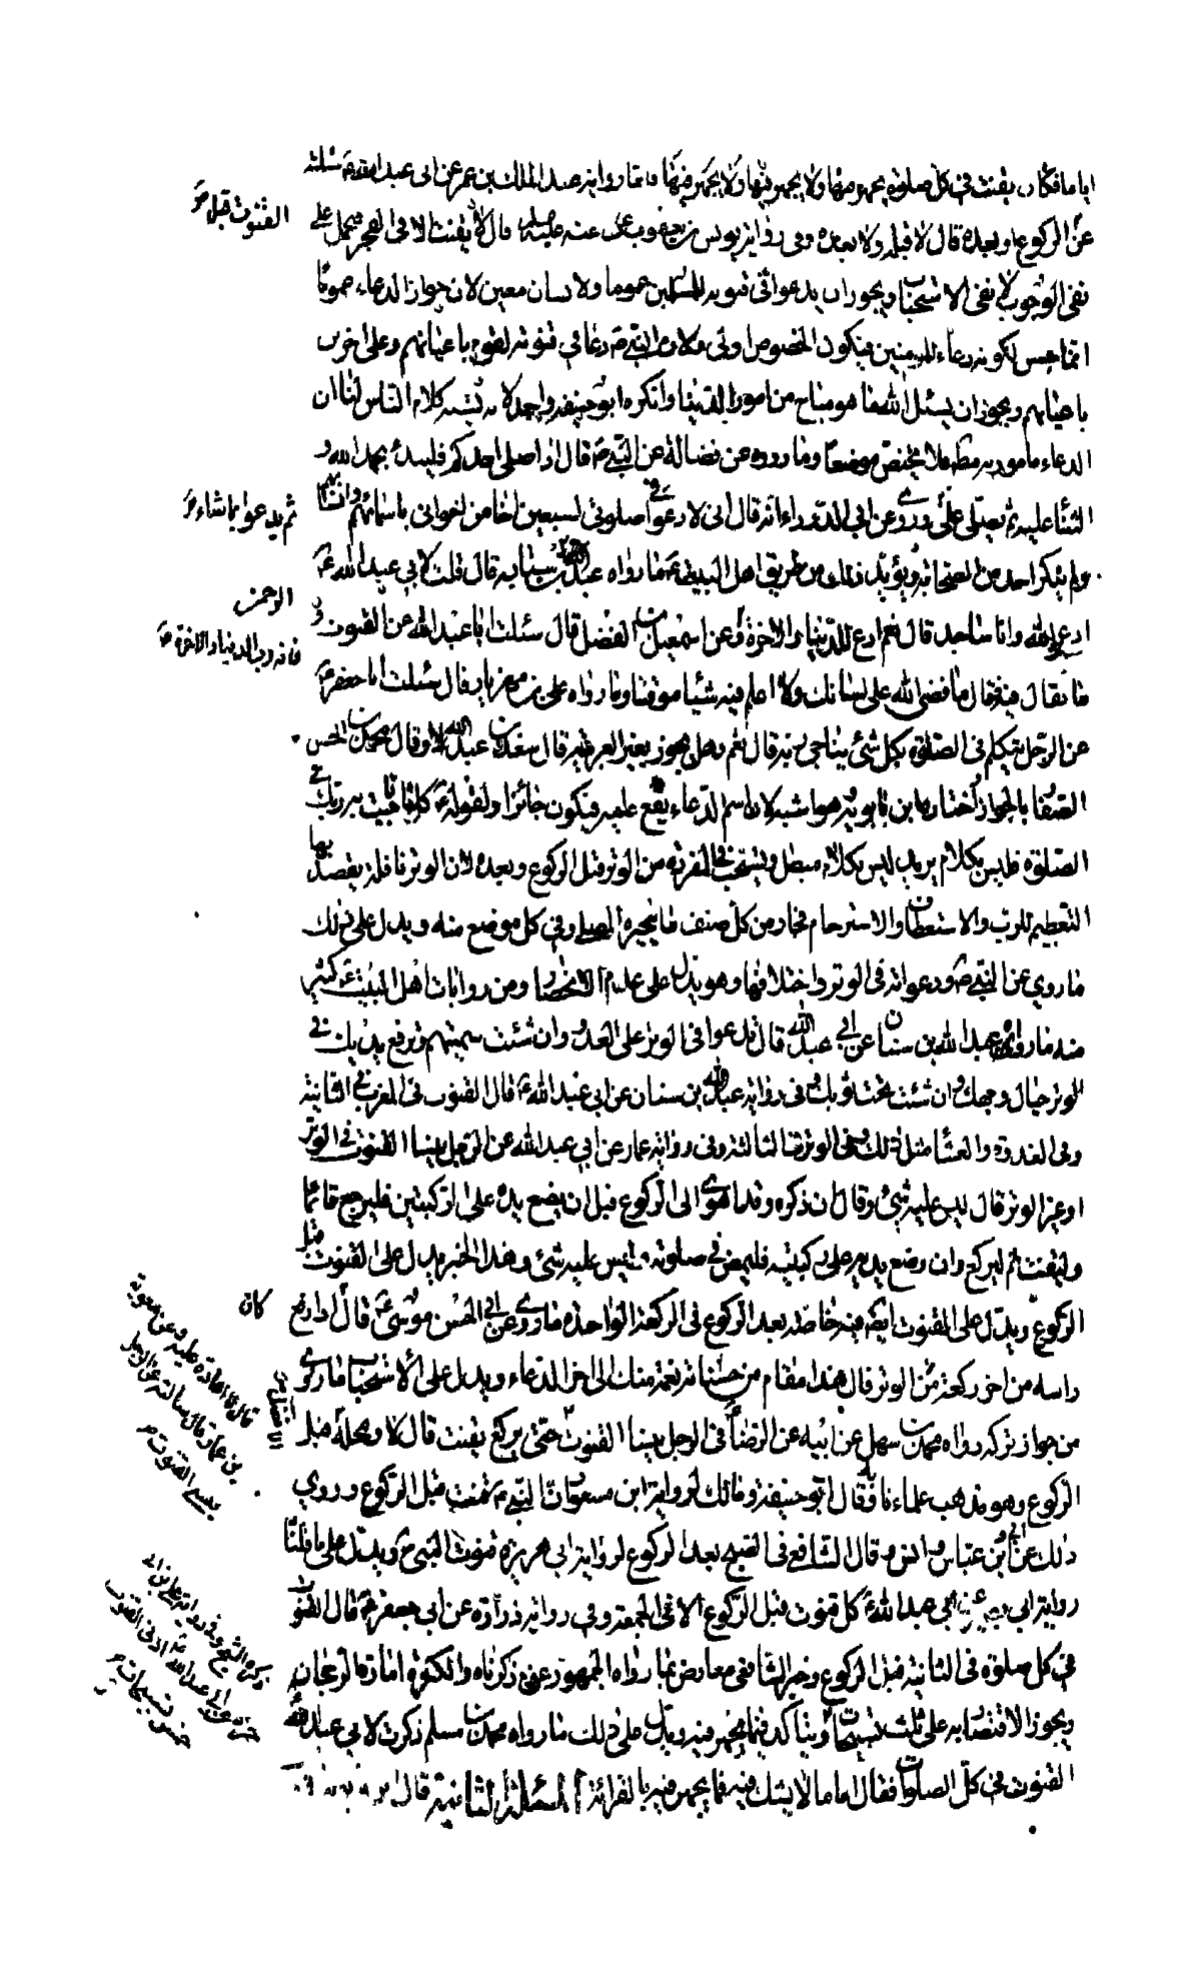 اياما فكان يقنت في كل صلوة يجهر فيها ولا يجهر فيها فاما رواية عبد الملك بن عمر عن ابي عبد الله ع سئلته
عن الركوع او بعده قال لا قبله ولا بعده وفي رواية يونس بن يعقوب عنه ع قال لا يقنت الا في الفجر فيحمل على
نفي الوجوب لا نفي الاستحباب ويجوز ان يدعو في قنوته للمسلمين عموما ولانسان معين لان جواز الدعاء عموما
انما حسن لكونه دعاء للمؤمنين فيكون الخصوص اولى ولان النبي ص دعا في قنوته لقوم باعيانهم وعلى اخرين
باعيانهم ويجوز ان يسئل الله ما هو مباح من امور الدنيا وانكره ابو حنيفة واحمد لانه يشبه كلام الناس لنا ان
الدعاء مامور به مطلقا فلا يختص موضعا وما رووه عن فضالة عن النبي ص قال اذا صلى احدكم فليبدء بحمد الله و
الثناء عليه ثم يصلي علي وروي عن ابي الدرداء انه قال اني لادعو في صلوتي لسبعين اخا من اخواني باسمائهم وانسابهم
ولم ينكر احد من الصحابة ويؤيد ذلك من طريق اهل البيت ع ما رواه عبد الرحمن بن سيابه قال قلت لابي عبد الله ع
ادعو الله وانا ساجد قال نعم ادع للدنيا والاخرة وعن اسمعيل بن الفضل قال سئلت ابا عبد الله عن القنوت و
ما يقال فيه فقال ما قضى الله على لسانك ولا اعلم فيه شيئا موقتا وما رواه علي بن مهزيار قال سئلت ابا جعفر ع
عن الرجل يتكلم في الصلوة بكل شئ يناجي ربه قال نعم وهل يجوز بغير العربية قال سعد بن عبد الله لا وقال محمد بن الحسن
الصفار بالجواز واختاره ابن بابويه وهو اشبه لان اسم الدعاء يقع عليه فيكون جائزا ولقوله ع كلما ناجيت به ربك في
الصلوة فليس بكلام يريد ليس بكلام مبطل ويستحب في المفردة من الوتر قبل الركوع وبعده لان الوتر نافلة يقصد بها
التعظيم للرب والاستعطاف والاسترحام فجاز من كل صنف ما يتخيره المصلي وفي كل موضع منه ويدل على ذلك
ما روي عن النبي ص ودعواته في الوتر واختلافها وهو يدل على عدم الانحصار ومن روايات اهل البيت ع كثير
منه ما رواه عبد الله بن سنان عن ابي عبد الله قال تدعو في الوتر على العدو وان شئت سميتهم وترفع يديك في
الوتر حيال وجهك وان شئت تحت ثوبك وفي رواية عبد الله بن سنان عن ابي عبد الله ع قال القنوت في المغرب في الثانية
وفي الغدوة والعشا مثل ذلك وفي الوتر في الثالثة وفي رواية عمار عن ابي عبد الله عن الرجل ينسا القنوت في الوتر
او غير الوتر قال ليس عليه شئ وقال ان ذكره وقد اهوى الى الركوع قبل ان يضع يده على الركبتين فليرجع قائما
وليقنت ثم ليركع وان وضع يديه على ركبتيه فليمض في صلوته وليس عليه شئ وهذا الخبر يدل على القنوت قبل
الركوع ويدل على القنوت ايضا فيه خاصة بعد الركوع في الركعة الواحدة ما روي عن ابي الحسن موسى ع قال اذا رفع
راسه من اخر ركعة من الوتر قال هذا مقام من حسناته نعمة منك الى اخر الدعاء ويدل على الاستحباب ما روي
من جواز تركه رواه محمد بن سهل عن ابيه عن الرضا ع في الرجل ينسا القنوت حتى يركع يقنت قال لا ومحله قبل
الركوع وهو مذهب علماءنا وقال ابو حنيفة ومالك لرواية ابن مسعود ان النبي ص قنت قبل الركوع وروي
ذلك عن ابي وابن عباس وانس وقال الشافعي في الصبح بعد الركوع لرواية ابي هريرة قنوت النبي ص ويدل على ما قلنا
رواية ابي بصير عن ابي عبد الله ع كل قنوت قبل الركوع الا في الجمعة وفي رواية زرارة عن ابي جعفر ع قال القنوت
في كل صلوة في الثانية قبل الركوع وخبر الشافعي معارض بما رواه الجمهور عمن ذكرناه والكثرة امارة الرجحان
ويجوز الاقتصار به على ثلث تسبيحات ويتأكد فيما يجهر فيه ويدل على ذلك ما رواه محمد بن مسلم ذكرت لابي عبد الله
القنوت في كل الصلوات فقال اما ما لا يشك فيه فما يجهر فيه بالقرائة المسئلة الثانية قال
القنوت قبل
ثم يدعو بما شاء
الرحمن
فانه رب الدنيا والاخرة
كان
قال لا اعادة عليه وعن معوية
بن عمار قال سالته عن الرجل
ينسى القنوت
حتى عن ابي عبد الله ع ادنى القنوت
خمس تسبيحات